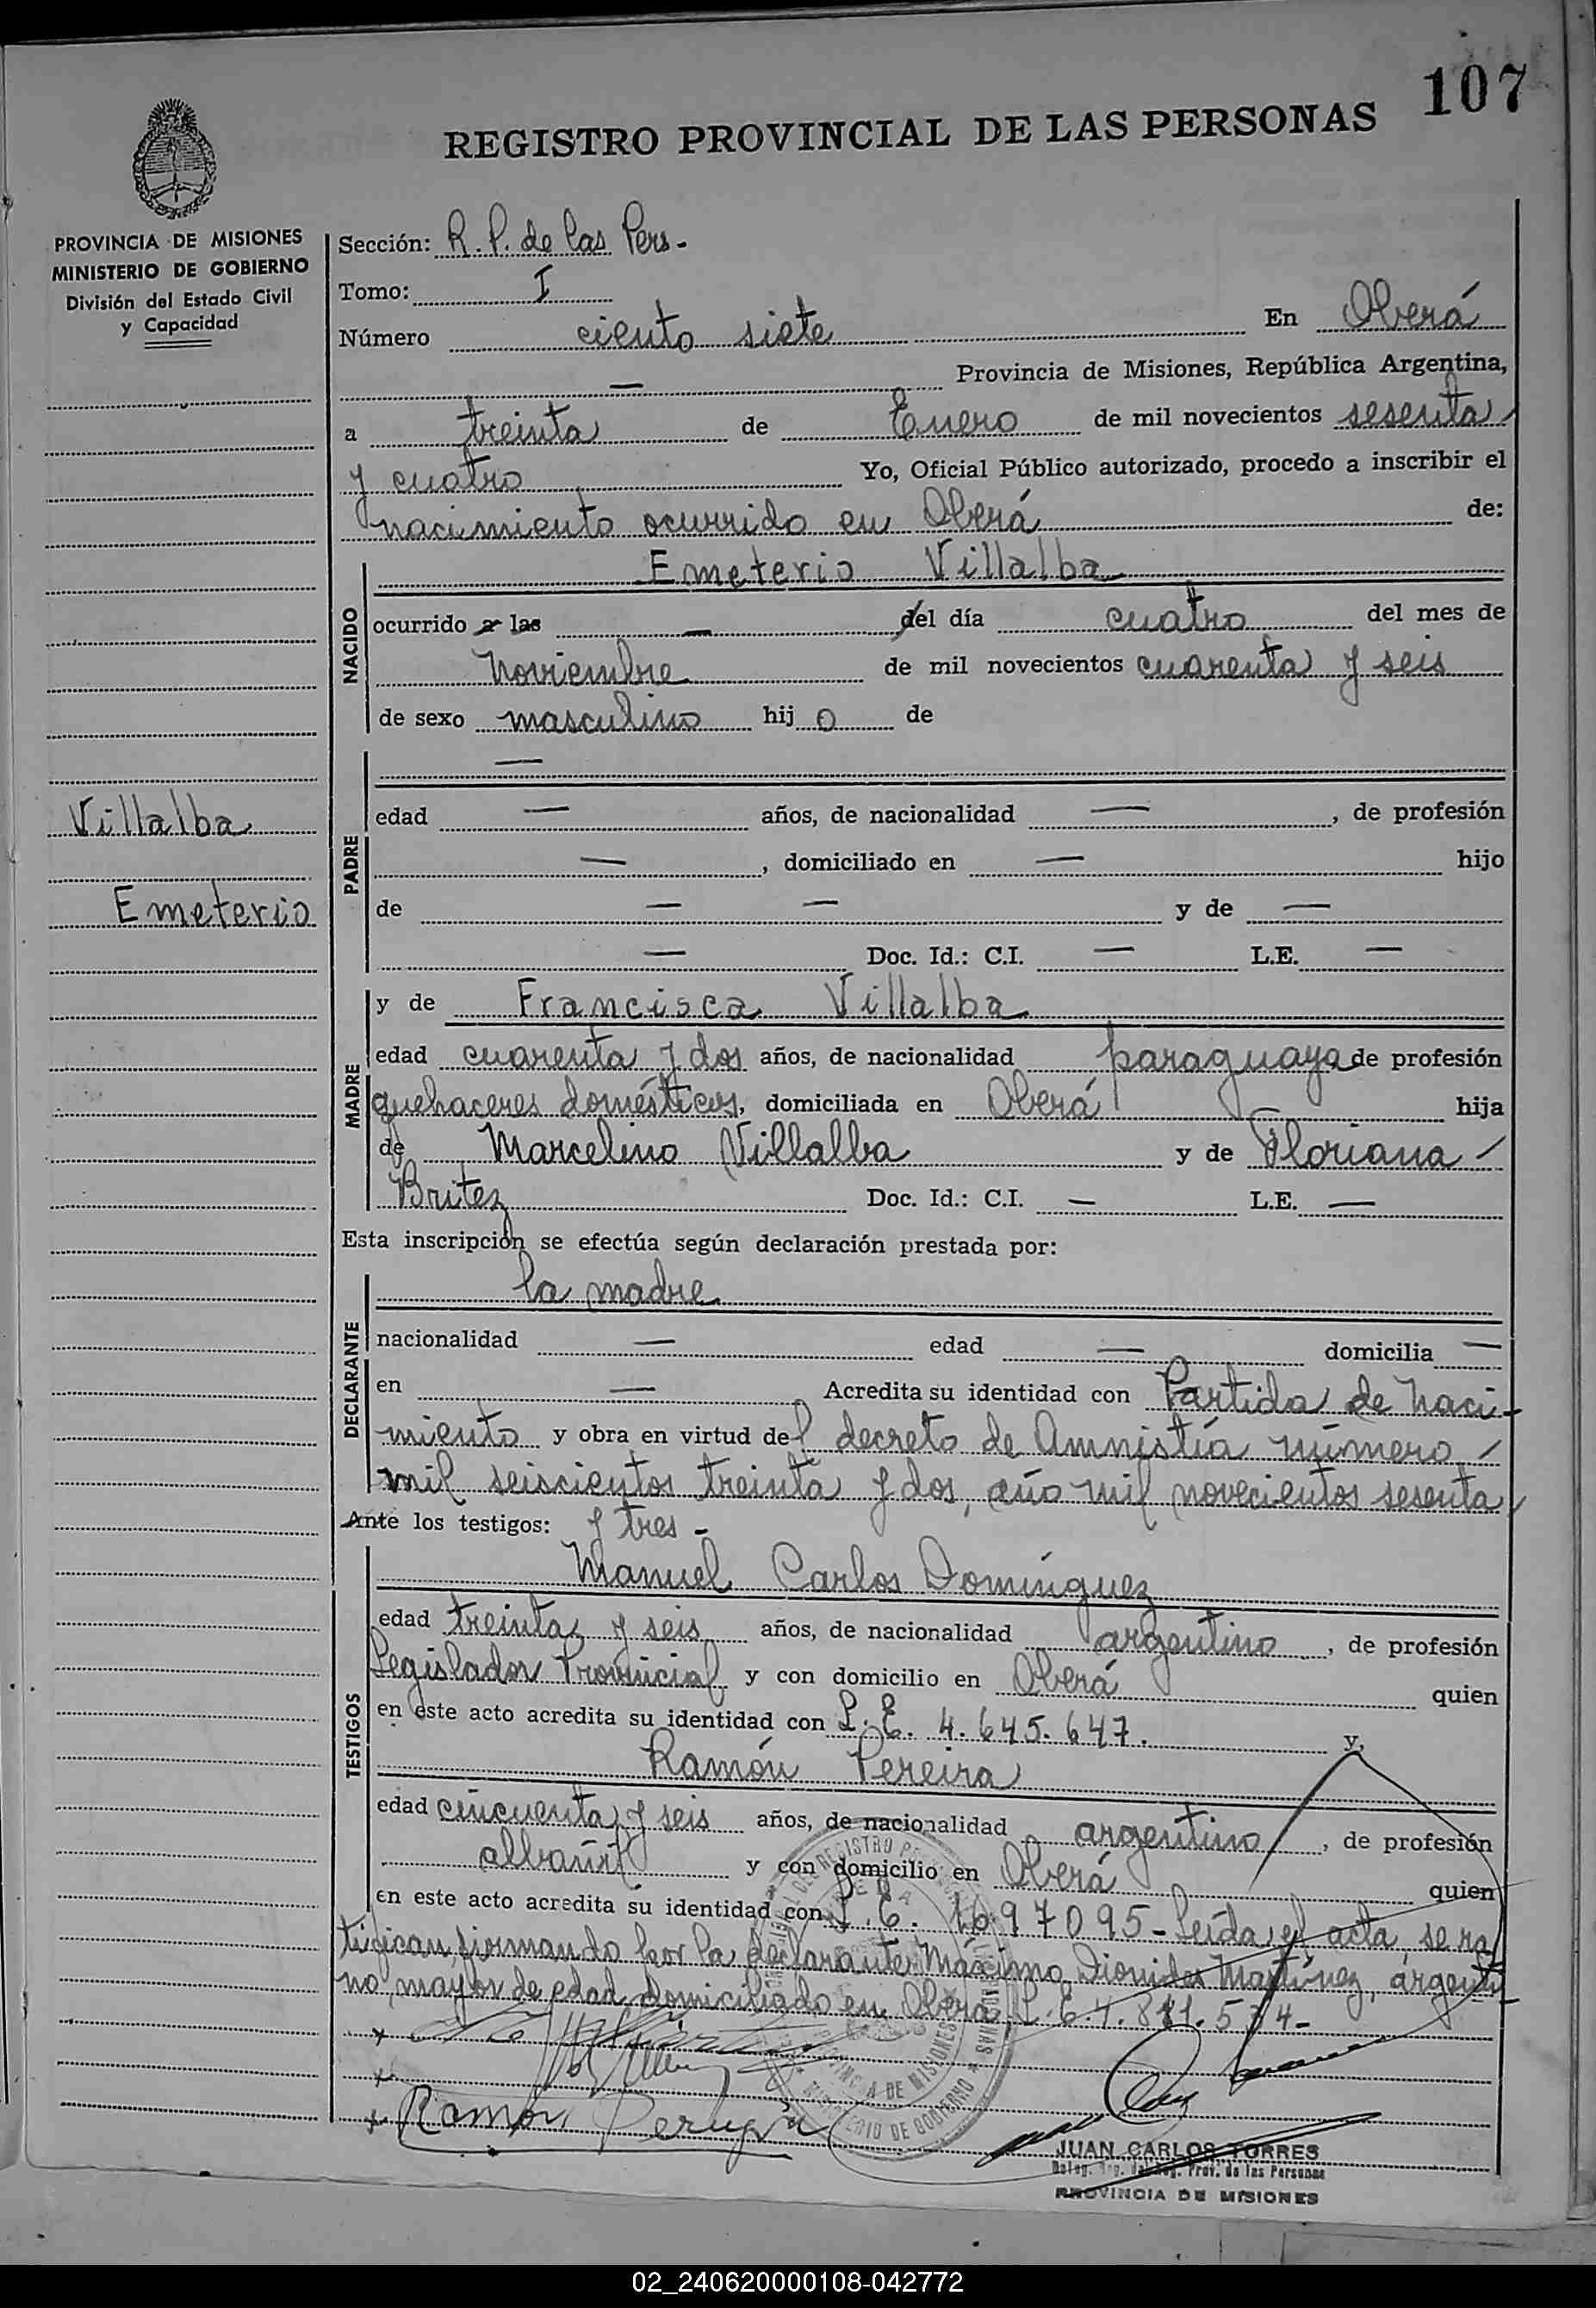 107
REGISTRO PROVINCIAL DE LAS PERSONAS
PROVINCIA DE MISIONES
MINISTERIO DE GOBIERNO
División del Estado Civil
y Capacidad
Villalba
Emeterio
Sección: R. P. de las Pers.-
Tomo: I
Número ciento siete En Oberá
— Provincia de Misiones, República Argentina,
a treinta de Enero de mil novecientos sesenta
y cuatro Yo, Oficial Público autorizado, procedo a inscribir el
nacimiento ocurrido en Oberá de:
NACIDO
Emeterio Villalba
ocurrido a las — del día cuatro del mes de
Noviembre de mil novecientos cuarenta y seis
de sexo masculino hijo de
PADRE
—
edad — años, de nacionalidad — , de profesión
— , domiciliado en — hijo
de — — y de —
— Doc. Id.: C.I. — L.E. —
MADRE
y de Francisca Villalba
edad cuarenta y dos años, de nacionalidad paraguaya de profesión
quehaceres domésticos, domiciliada en Oberá — hija
de Marcelino Villalba y de Floriana /
Britez Doc. Id.: C.I. — L.E. —
Esta inscripción se efectúa según declaración prestada por:
DECLARANTE
la madre
nacionalidad — edad — domicilia —
en — Acredita su identidad con Partida de Naci-
miento y obra en virtud del decreto de Amnistía número /
mil seiscientos treinta y dos, año mil novecientos sesenta
Ante los testigos: y tres -
TESTIGOS
Manuel Carlos Domínguez
edad treinta y seis años, de nacionalidad argentino , de profesión
Legislador Provincial y con domicilio en Oberá quien
en este acto acredita su identidad con L. E. 4.645.647. y,
Ramón Pereira
edad cincuenta y seis años, de nacionalidad argentino , de profesión
albañil y con domicilio en Oberá quien
en este acto acredita su identidad con L. E. 1697095 - Leída el acta, se ra
tifican, firmando por la declarante: Máximo Dionides Martínez, argenti
no, mayor de edad, domiciliado en Oberá, L. E.
Ramón
JUAN CARLOS TORRES
Prov. de las Personas
PROVINCIA DE MISIONES
MINISTERIO DE GOBIERNO
PROVINCIA DE MISIONES
02_240620000108-042772